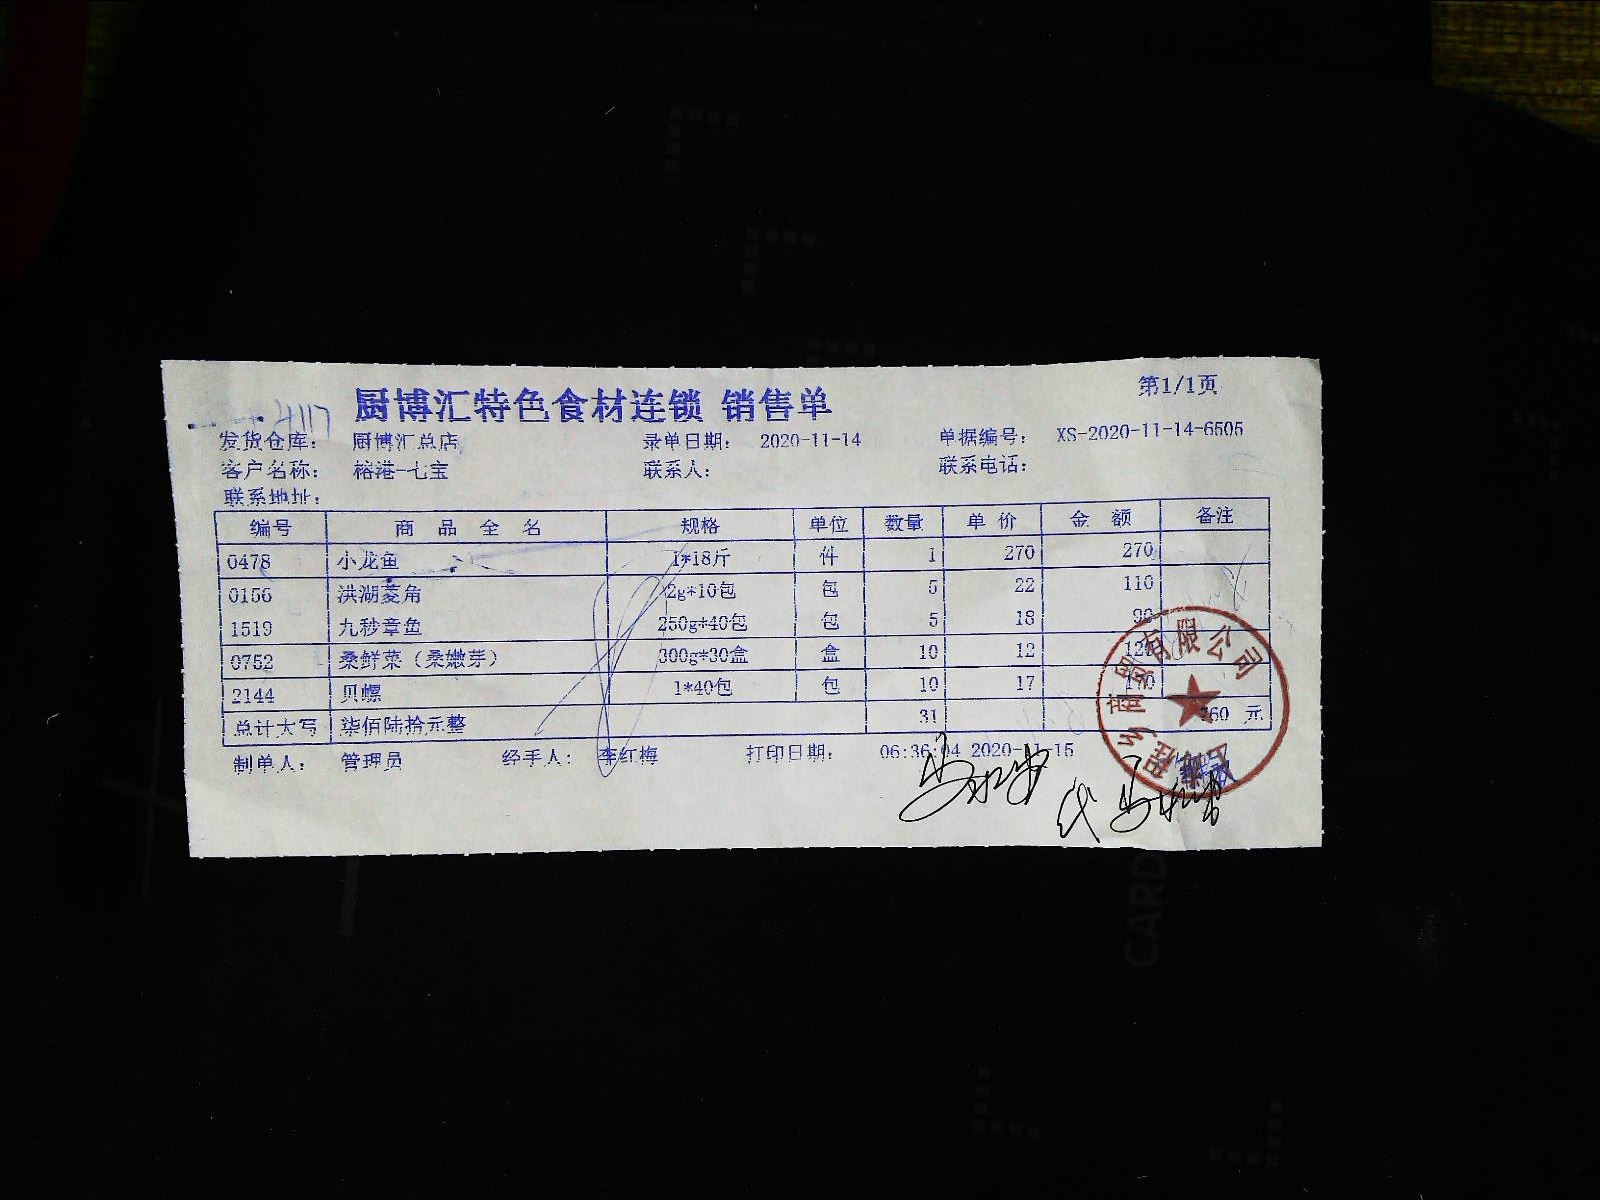 第1/1页
厨博汇特色食材连锁 销售单
4117
发货仓库： 厨博汇总店 录单日期： 2020-11-14 单据编号： XS-2020-11-14-6505
客户名称： 榕港-七宝 联系人： 联系电话：
联系地址：
编号 商品全名 规格 单位 数量 单价 金额 备注
0478 小龙鱼 1*18斤 件 1 270 270
0156 洪湖菱角 2g*10包 包 5 22 110
1519 九秒章鱼 250g*40包 包 5 18 90
0752 桑鲜菜（桑嫩芽） 300g*30盒 盒 10 12 120
2144 贝螺 1*40包 包 10 17 170
总计大写 柒佰陆拾元整 31 760 元
制单人： 管理员 经手人： 李红梅 打印日期： 06:36:04 2020-11-15
商贸有限公司